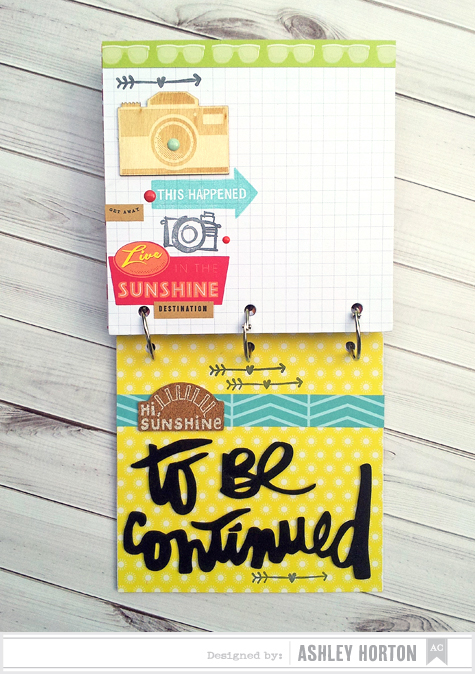 THIS HAPPENED
GET AWAY
Live
IN THE
SUNSHINE
DESTINATION
Hi,
SUNSHINE
to Be
continued
Designed by: ASHLEY HORTON AC